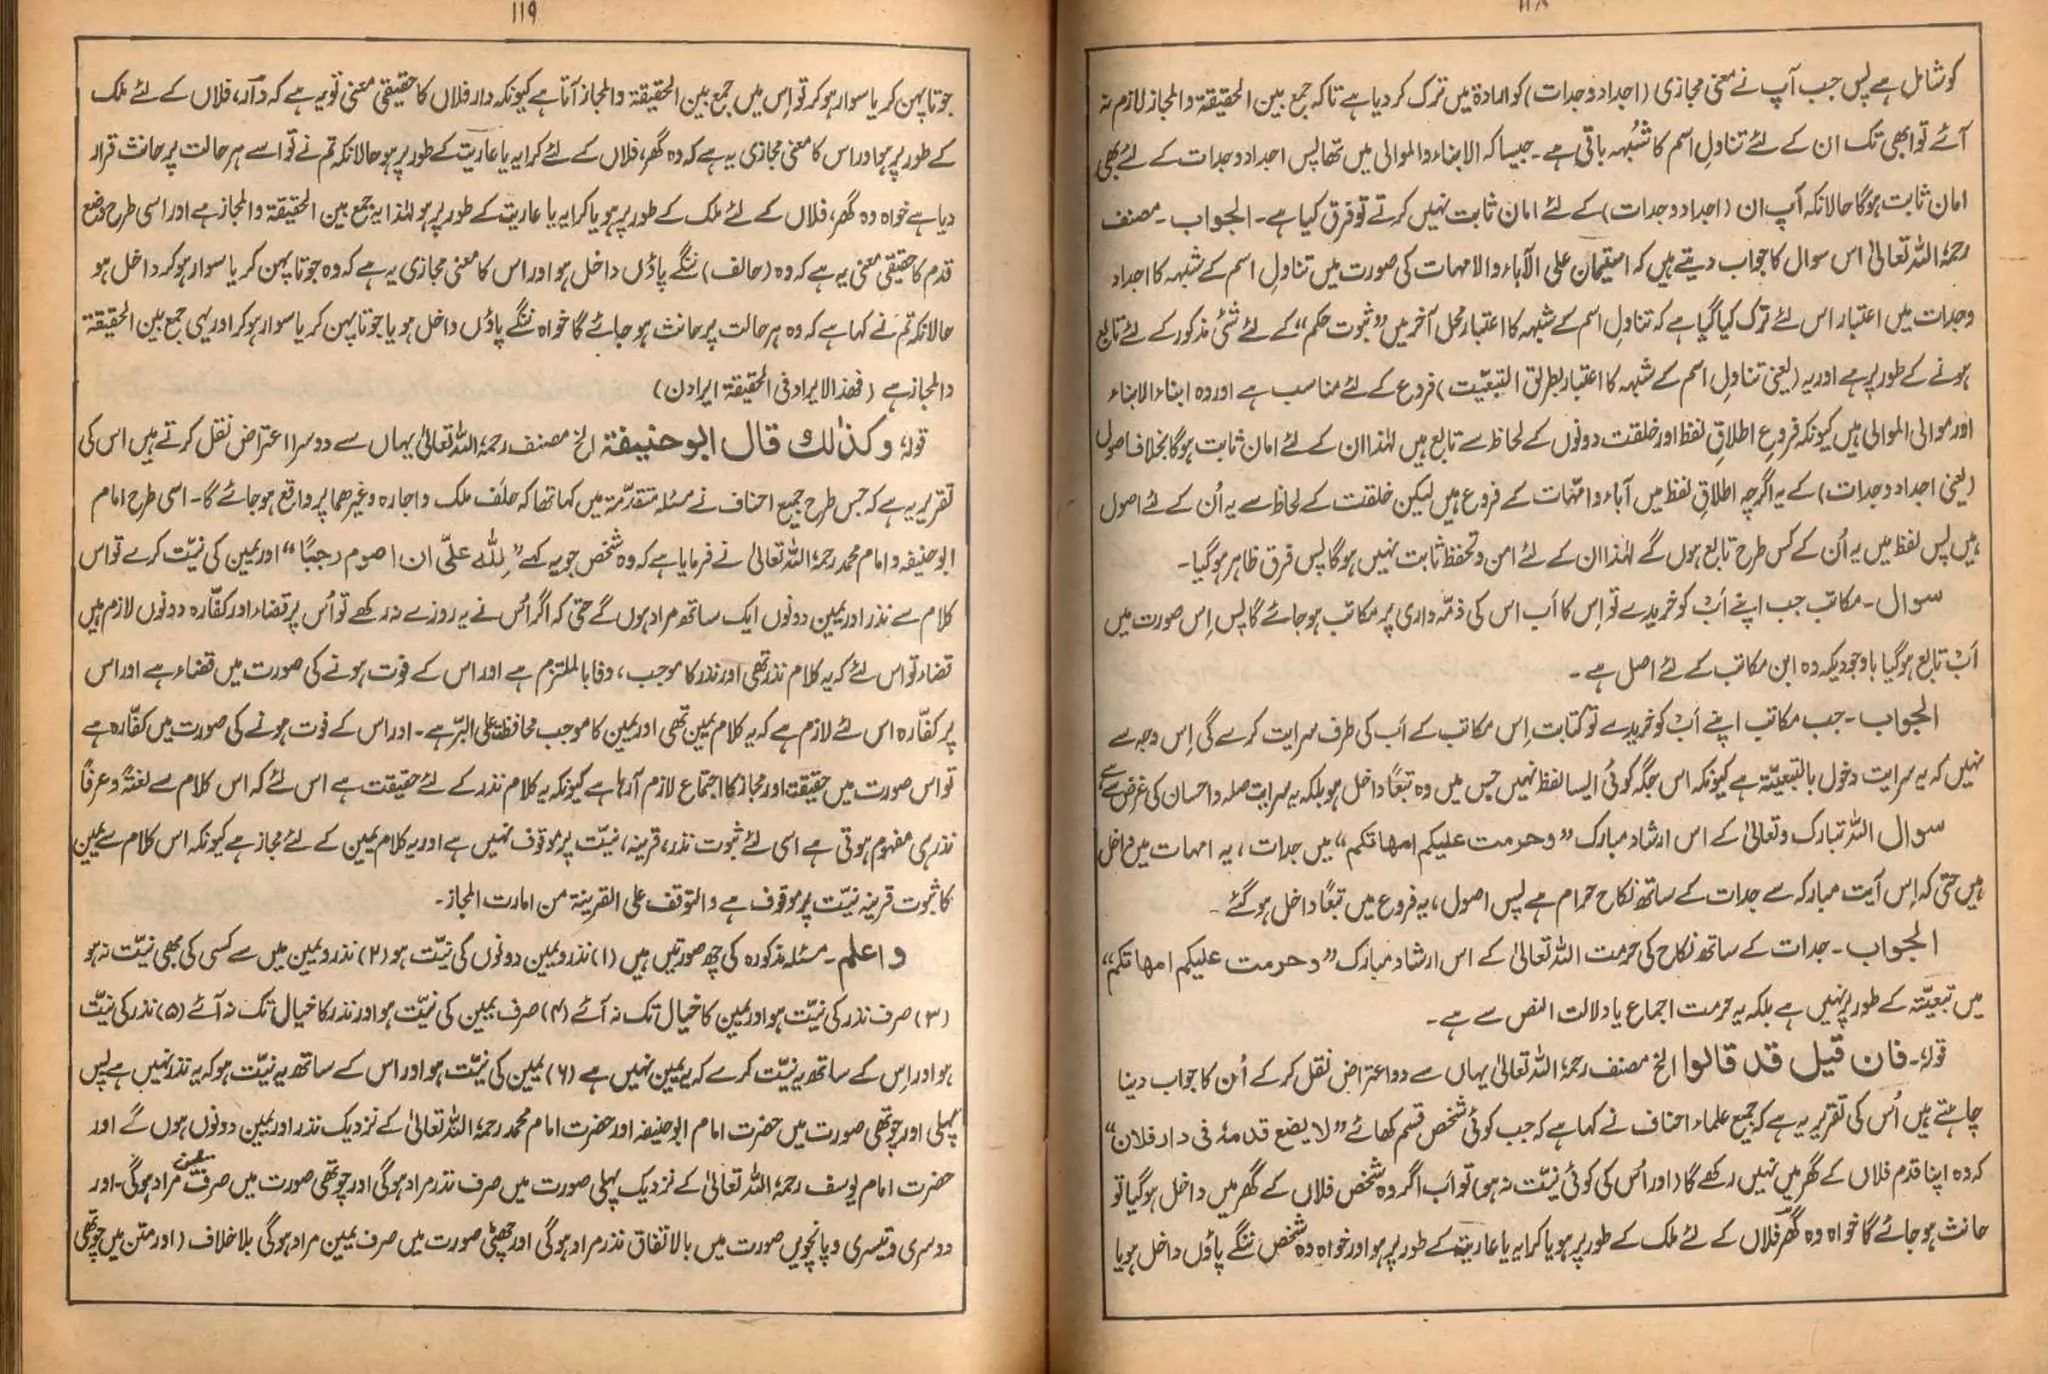 ۱۱۸
کو شامل ہے پس جب آپ نے معنی مجازی (اجداد وجدات) کو المادۃ میں ترک کر دیا ہے تاکہ جمع بین الحقیقۃ والمجاز لازم نہ
آئے تو ابھی تک ان کے لئے تناولِ اسم کا شُبہہ باقی ہے۔ جیسا کہ الابناء والموالی میں تھا پس اجداد وجدات کے لئے بھی
امان ثابت ہوگا حالانکہ آپ ان (اجداد وجدات) کے لئے امان ثابت نہیں کرتے تو فرق کیا ہے۔ الجواب۔ مصنف
رحمۃ اللہ تعالیٰ اس سوال کا جواب دیتے ہیں کہ استیمان علی الآباء والامہات کی صورت میں تناولِ اسم کے شبہہ کا اجداد
وجدات میں اعتبار اس لئے ترک کیا گیا ہے کہ تناولِ اسم کے شبہہ کا اعتبار محل آخر میں ”ثبوت حکم“ کے لئے شئ مذکور کے لئے تابع
ہونے کے طور پر ہے اور یہ (یعنی تناولِ اسم کے شبہہ کا اعتبار بطریق التبعیّت) فروع کے لئے مناسب ہے اور وہ ابناء الابناء
اور موالی الموالی ہیں کیونکہ فروع اطلاقِ لفظ اور خلقت دونوں کے لحاظ سے تابع ہیں لہٰذا ان کے لئے امان ثابت ہوگا بخلاف اصول
(یعنی اجداد وجدات) کے یہ اگرچہ اطلاقِ لفظ میں آباء وامّہات کے فروع ہیں لیکن خلقت کے لحاظ سے یہ اُن کے لئے اصول
ہیں پس لفظ میں یہ اُن کے کس طرح تابع ہوں گے لہٰذا ان کے لئے امن وتحفظ ثابت نہیں ہوگا پس فرق ظاہر ہوگیا۔
سوال۔ مکاتب جب اپنے اَبْ کو خریدے تو اِس کا اَب اس کی ذمّہ داری پر مکاتب ہو جائے گا پس اِس صورت میں
اَبْ تابع ہوگیا باوجودیکہ وہ ابن مکاتب کے لئے اصل ہے۔
الجواب۔ جب مکاتب اپنے اَبْ کو خریدے تو کتابت اِس مکاتب کے اَب کی طرف سرایت کرے گی اِس وجہ سے
نہیں کہ یہ سرایت دخول بالتبعیّۃ ہے کیونکہ اس جگہ کوئی ایسا لفظ نہیں جس میں وہ تبعًا داخل ہو بلکہ یہ سرایت صلہ واحسان کی غرض سے ہے
سوال اللہ تبارک وتعالیٰ کے اس ارشاد مبارک ”وحرمت علیکم امھاتکم“ میں جدات، یہ امہات میں داخل
ہیں حتیٰ کہ اِس آیت مبارکہ سے جدات کے ساتھ نکاح حرام ہے پس اصول، یہ فروع میں تبعًا داخل ہوگئے۔
الجواب۔ جدات کے ساتھ نکاح کی حرمت اللہ تعالیٰ کے اس ارشاد مبارک ”وحرمت علیکم امھاتکم“
میں تبعیّۃ کے طور پر نہیں ہے بلکہ یہ حرمت اجماع یا دلالت النص سے ہے۔
قولہ۔ فان قیل قد قالوا الخ مصنف رحمۃ اللہ تعالیٰ یہاں سے دو اعتراض نقل کر کے اُن کا جواب دینا
چاہتے ہیں اُس کی تقریر یہ ہے کہ جمیع علماء احناف نے کہا ہے کہ جب کوئی شخص قسم کھائے ”لا یضع قدمہ فی دار فلان“
کہ وہ اپنا قدم فلاں کے گھر میں نہیں رکھے گا (اور اُس کی کوئی نیّت نہ ہو) تو اَب اگر وہ شخص فلاں کے گھر میں داخل ہوگیا تو
حانث ہو جائے گا خواہ وہ گھر فلاں کے لئے ملک کے طور پر ہو یا کرایہ یا عاریۃ کے طور پر ہو اور خواہ وہ شخص ننگے پاؤں داخل ہو یا
۱۱۹
جوتا پہن کر یا سوار ہو کر تو اِس میں جمع بین الحقیقۃ والمجاز آتا ہے کیونکہ دار فلاں کا حقیقی معنی تو یہ ہے کہ دار، فلاں کے لئے ملک
کے طور پر ہو اور اس کا معنی مجازی یہ ہے کہ وہ گھر، فلاں کے لئے کرایہ یا عاریت کے طور پر ہو حالانکہ تم نے تو اسے ہر حالت پر حانث قرار
دیا ہے خواہ وہ گھر، فلاں کے لئے ملک کے طور پر ہو یا کرایہ یا عاریت کے طور پر ہو لہٰذا یہ جمع بین الحقیقۃ والمجاز ہے اور اسی طرح وضع
قدم کا حقیقی معنی یہ ہے کہ وہ (حالف) ننگے پاؤں داخل ہو اور اس کا معنی مجازی یہ ہے کہ وہ جوتا پہن کر یا سوار ہو کر داخل ہو
حالانکہ تم نے کہا ہے کہ وہ ہر حالت پر حانث ہو جائے گا خواہ ننگے پاؤں داخل ہو یا جوتا پہن کر یا سوار ہو کر اور یہی جمع بین الحقیقۃ
والمجاز ہے (فھذا الایراد فی الحقیقۃ ایرادن)
قولہ، وکذٰلك قال ابوحنیفۃ الخ مصنف رحمۃ اللہ تعالیٰ یہاں سے دوسرا اعتراض نقل کرتے ہیں اس کی
تقریر یہ ہے کہ جس طرح جمیع احناف نے مسئلہ متقدّمۃ میں کہا تھا کہ حلف ملک واجارہ وغیرھما پر واقع ہو جائے گا۔ اسی طرح امام
ابوحنیفہ وامام محمد رحمۃ اللہ تعالیٰ نے فرمایا ہے کہ وہ شخص جو یہ کہے ”لِلّٰہ علیّ ان اصوم رجبًا“ اور یمین کی نیّت کرے تو اس
کلام سے نذر اور یمین دونوں ایک ساتھ مراد ہوں گے حتیٰ کہ اگر اُس نے یہ روزے نہ رکھے تو اُس پر قضاء اور کفّارہ دونوں لازم ہیں
قضاء تو اس لئے کہ یہ کلام نذر تھی اور نذر کا موجب، وفا بالملتزم ہے اور اس کے فوت ہونے کی صورت میں قضاء ہے اور اس
پر کفّارہ اس لئے لازم ہے کہ یہ کلام یمین تھی اور یمین کا موجب محافظۃ علی البرّ ہے۔ اور اس کے فوت ہونے کی صورت میں کفّارہ ہے
تو اس صورت میں حقیقۃ اور مجاز کا اجتماع لازم آرہا ہے کیونکہ یہ کلام نذر کے لئے حقیقت ہے اس لئے کہ اس کلام سے لغتہً وعرفاً
نذر ہی مفہوم ہوتی ہے اسی لئے ثبوت نذر، قرینہ، نیّت پر موقوف نہیں ہے اور یہ کلام یمین کے لئے مجاز ہے کیونکہ اس کلام سے یمین
کا ثبوت قرینہ نیّت پر موقوف ہے والتوقف علی القرینۃ من امارت المجاز۔
واعلم۔ مسئلہ مذکورہ کی چھ صورتیں ہیں (۱) نذر ویمین دونوں کی نیّت ہو (۲) نذر ویمین میں سے کسی کی بھی نیّت نہ ہو
(۳) صرف نذر کی نیّت ہو اور یمین کا خیال تک نہ آئے (۴) صرف یمین کی نیّت ہو اور نذر کا خیال تک نہ آئے (۵) نذر کی نیّت
ہو اور اِس کے ساتھ یہ نیّت کرے کہ یہ یمین نہیں ہے (۶) یمین کی نیّت ہو اور اس کے ساتھ یہ نیّت ہو کہ یہ نذر نہیں ہے پس
پہلی اور چوتھی صورت میں حضرت امام ابوحنیفہ اور حضرت امام محمد رحمۃ اللہ تعالیٰ کے نزدیک نذر اور یمین دونوں ہوں گے اور
حضرت امام یوسف رحمۃ اللہ تعالیٰ کے نزدیک پہلی صورت میں صرف نذر مراد ہوگی اور چوتھی صورت میں صرف یمین مراد ہوگی۔ اور
دوسری وتیسری وپانچویں صورت میں بالاتفاق نذر مراد ہوگی اور چھٹی صورت میں صرف یمین مراد ہوگی بلاخلاف (اور متن میں چوتھی